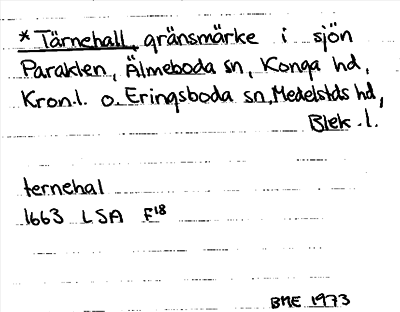 *Tärnehall, gränsmärke i sjön
Parakten, Älmeboda sn, Konga hd,
Kron.l. o. Eringsboda sn, Medelstds hd,
Blek.l.
ternehal
1663 LSA F18
BME 1973